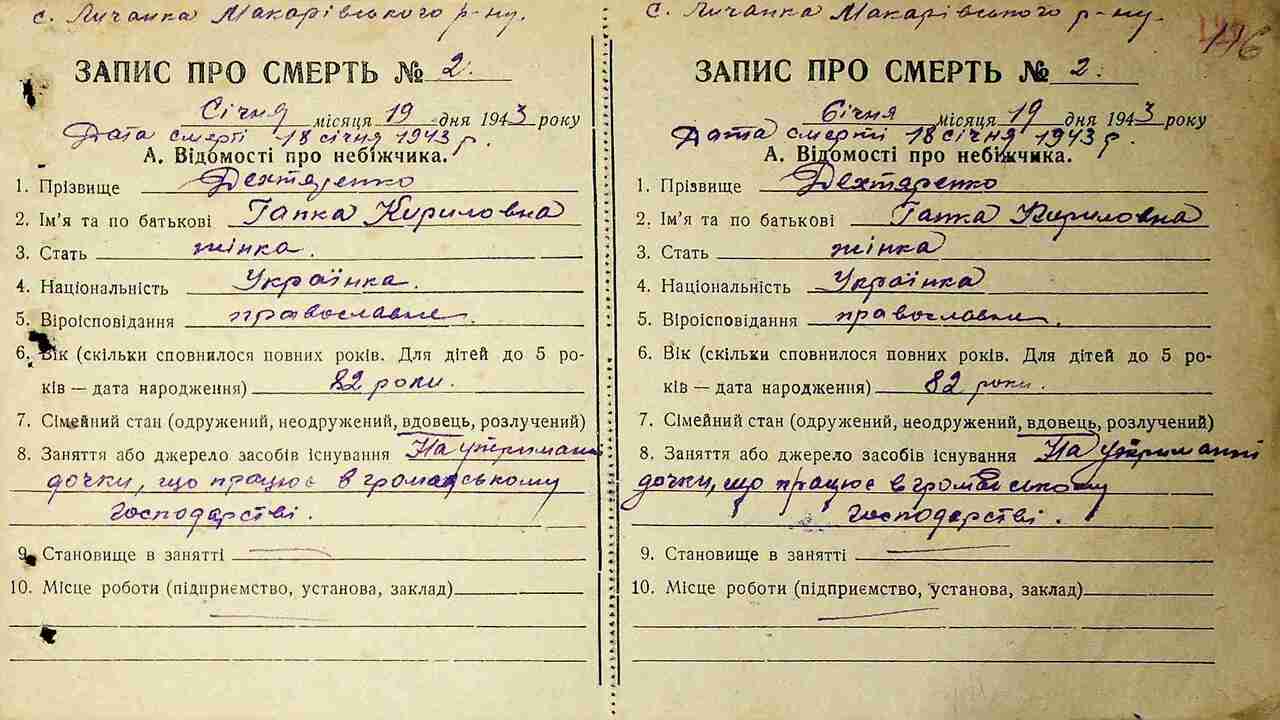 с. Личанка Макарівського р-ну.
ЗАПИС ПРО СМЕРТЬ № 2.
Січня місяця 19 дня 1943 року
Дата смерті 18 січня 1943 р.
А. Відомості про небіжчика.
1. Прізвище Дехтяренко
2. Ім'я та по батькові Гапка Кириловна
3. Стать жінка.
4. Національність Українка.
5. Віроісповідання православне.
6. Вік (скільки сповнилося повних років. Для дітей до 5 ро-
ків — дата народження) 82 роки.
7. Сімейний стан (одружений, неодружений, вдовець, розлучений)
8. Заняття або джерело засобів існування На утриманні
дочки, що працює в громадському
господарстві.
9. Становище в занятті
10. Місце роботи (підприємство, установа, заклад)
с. Личанка Макарівського р-ну.
ЗАПИС ПРО СМЕРТЬ № 2.
Січня місяця 19 дня 1943 року
Дата смерті 18 січня 1943 р.
А. Відомості про небіжчика.
1. Прізвище Дехтяренко
2. Ім'я та по батькові Гапка Кириловна
3. Стать жінка
4. Національність Українка
5. Віроісповідання православне.
6. Вік (скільки сповнилося повних років. Для дітей до 5 ро-
ків — дата народження) 82 роки.
7. Сімейний стан (одружений, неодружений, вдовець, розлучений)
8. Заняття або джерело засобів існування На утриманні
дочки, що працює в громадському
господарстві.
9. Становище в занятті
10. Місце роботи (підприємство, установа, заклад)